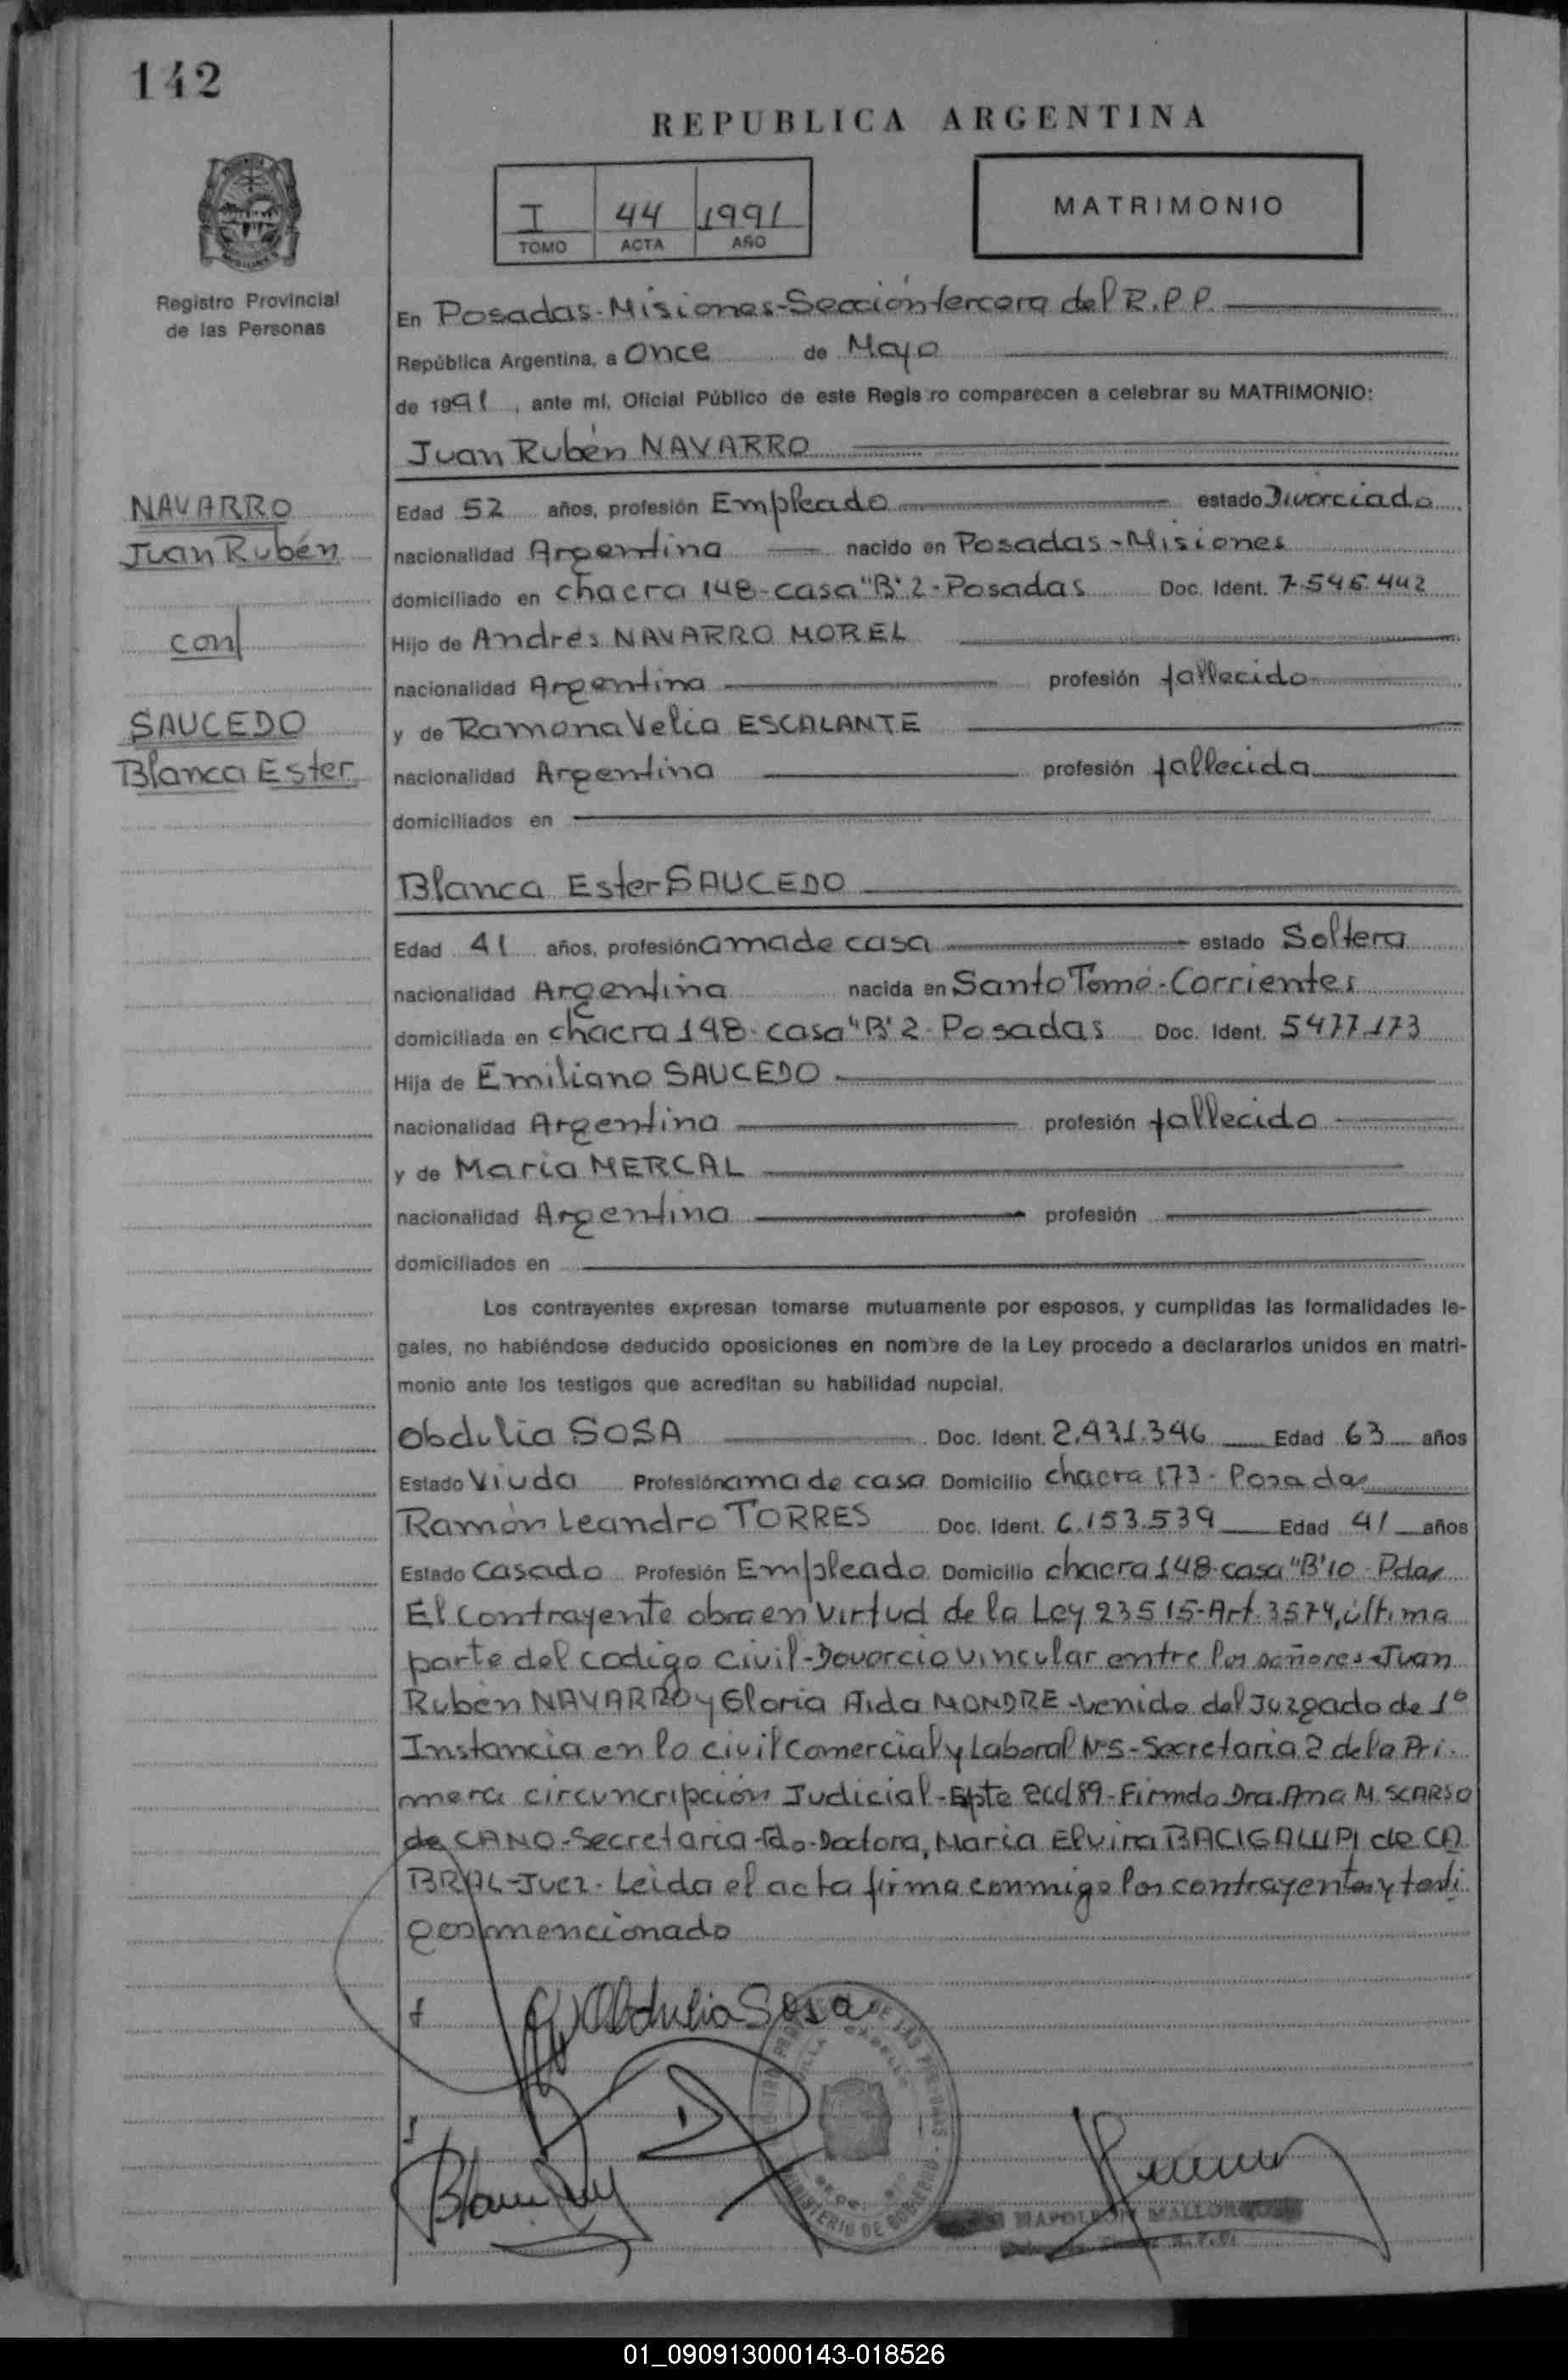 142
REPUBLICA ARGENTINA
I 44 1991
TOMO ACTA AÑO
MATRIMONIO
Registro Provincial
de las Personas
En Posadas-Misiones-Sección tercera del R.P.P.
República Argentina, a Once de Mayo
de 1991, ante mí, Oficial Público de este Regis ro comparecen a celebrar su MATRIMONIO:
Juan Rubén NAVARRO
NAVARRO
Juan Rubén
con
SAUCEDO
Blanca Ester
Edad 52 años, profesión Empleado estado Divorciado
nacionalidad Argentina nacido en Posadas-Misiones
domiciliado en chacra 148-casa "B" 2-Posadas Doc. Ident. 7.546.442
Hijo de Andrés NAVARRO MOREL
nacionalidad Argentina profesión fallecido
y de Ramona Velia ESCALANTE
nacionalidad Argentina profesión fallecida
domiciliados en
Blanca Ester SAUCEDO
Edad 41 años, profesión ama de casa estado Soltera
nacionalidad Argentina nacida en Santo Tomé-Corrientes
domiciliada en chacra 148-casa "B" 2-Posadas Doc. Ident. 5477.173
Hija de Emiliano SAUCEDO
nacionalidad Argentino profesión fallecido
y de Maria MERCAL
nacionalidad Argentina profesión
domiciliados en
Los contrayentes expresan tomarse mutuamente por esposos, y cumplidas las formalidades le-
gales, no habiéndose deducido oposiciones en nombre de la Ley procedo a declararlos unidos en matri-
monio ante los testigos que acreditan su habilidad nupcial.
Obdulia SOSA Doc. Ident. 2.431.346 Edad 63 años
Estado Viuda Profesión ama de casa Domicilio chacra 173-Posadas
Ramón Leandro TORRES Doc. Ident. 6.153.539 Edad 41 años
Estado Casado Profesión Empleado Domicilio chacra 148-casa "B" 10-Pdas
El contrayente obra en virtud de la Ley 23515-Art. 3574, última
parte del codigo civil-Dovorcio vincular entre los señores Juan
Rubén NAVARRO y Gloria Aida MONDRE-venido del Juzgado de 1º
Instancia en lo civil Comercial y Laboral Nº5-Secretaria 2 de la Pri-
mera circuncripción Judicial-Epte 89-Firmdo Dra. Ana M. SCARSO
de CANO-Secretaria-Fdo-Doctora, Maria Elvira BACIGALUPI de CA
BRAL-Juez. Leida el acta firma conmigo los contrayentes y testi
gos mencionado
Obdulia Sosa
MINISTERIO DE GOBIERNO
NAPOLEON MALLOR
01_090913000143-018526